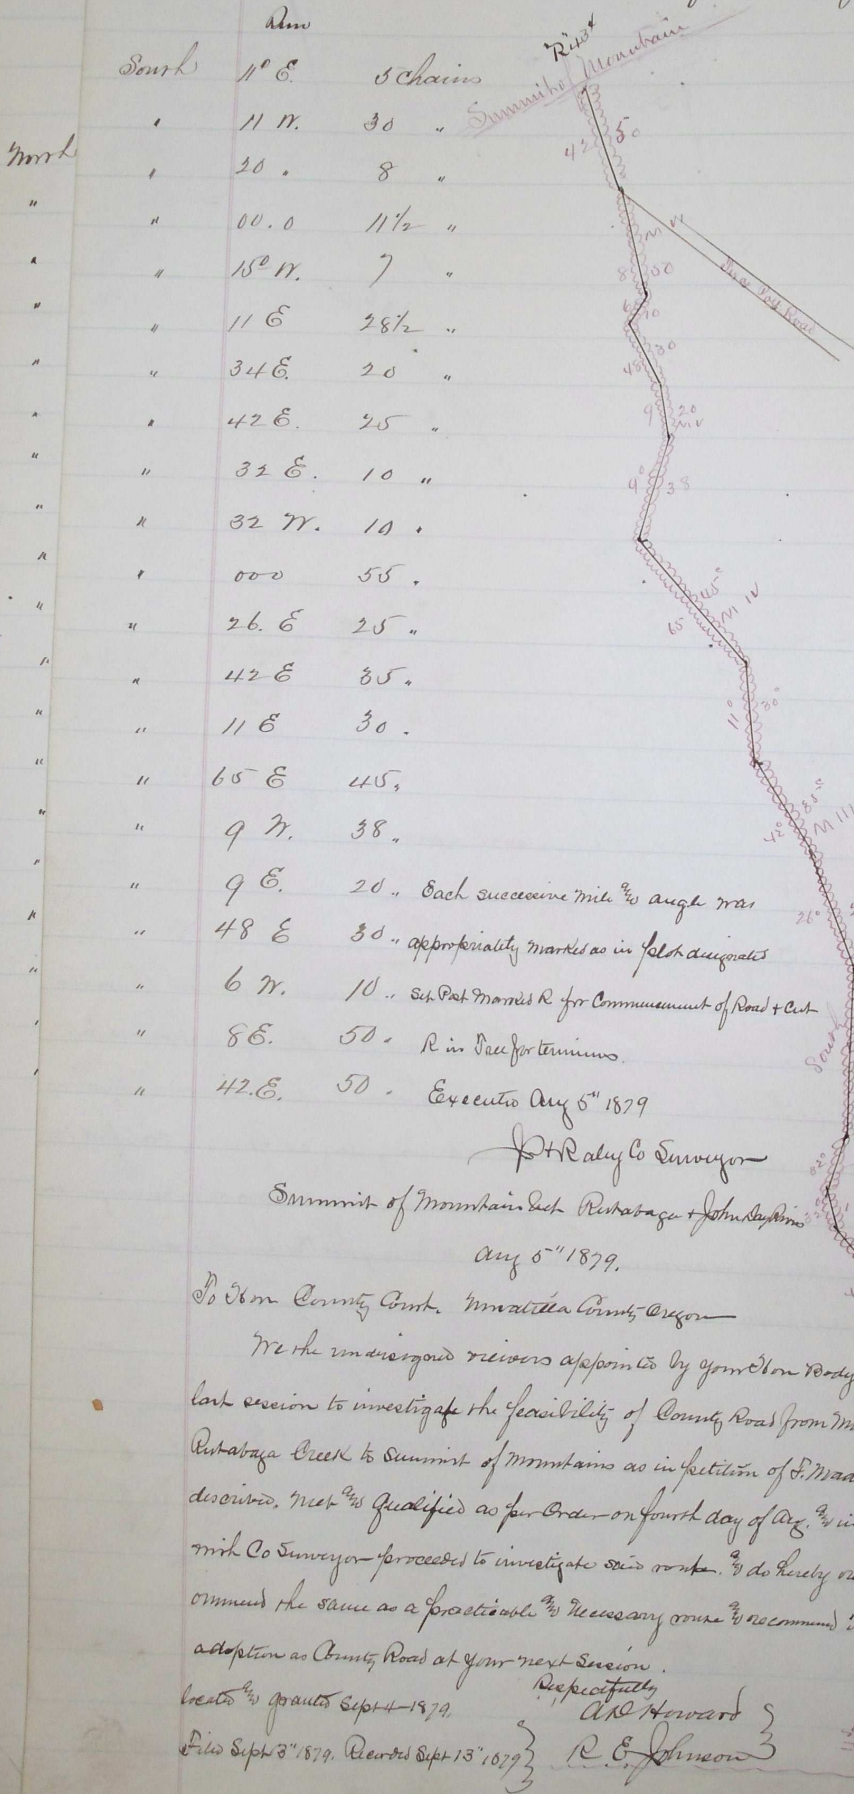 Run
South 11° E. 5 chains
" 11 W. 30 "
North " 20 " 8 "
" " 00.0 11 1/2 "
" " 15° W. 7 "
" " 11 E 28 1/2 "
" " 34 E. 20 "
" " 42 E. 25 "
" " 32 E. 10 "
" " 32 W. 10 "
" " 000 55 "
" " 26. E 25 "
" " 42 E 35 "
" " 11 E 30 "
" " 65 E 45 "
" " 9 W. 38 "
" " 9 E. 20 " Each successive mile & angle was
" " 48 E 30 " appropriately marked as in plot designated
" " 6 W. 10 " Set Post Marked R for Commencement of Road + Cut
" " 8 E. 50 " R in Tree for terminus.
" " 42. E. 50 " Executed Aug 5" 1879
J H Raley Co Surveyor
Summit of Mountain bet Rutabaga + John Day Rivers
Aug 5" 1879.
To Hon County Court. Umatilla County Oregon
We the undersigned viewers appointed by your Hon Body
last session to investigate the feasibility of County Road from
Rutabaga Creek to Summit of Mountains as in petition of F.
described. Met & Qualified as per Order on fourth day of Aug. &
with Co Surveyor proceeded to investigate said route. & do hereby
ommend the same as a practicable & Necessary route & recommend
adoption as County Road at your next Session.
Respectfully
located & granted Sept 4 - 1879.
A D Howard
Filed Sept 3" 1879. Recorded Sept 13" 1879
R E Johnson
R 43+
Summit of Mountain
42 50
M V
Road
8 50
6 10
48 30
9 20
M V
9° 38
65 45°
M IV
11° 30°
42° 35°
M III
26°
South
32°